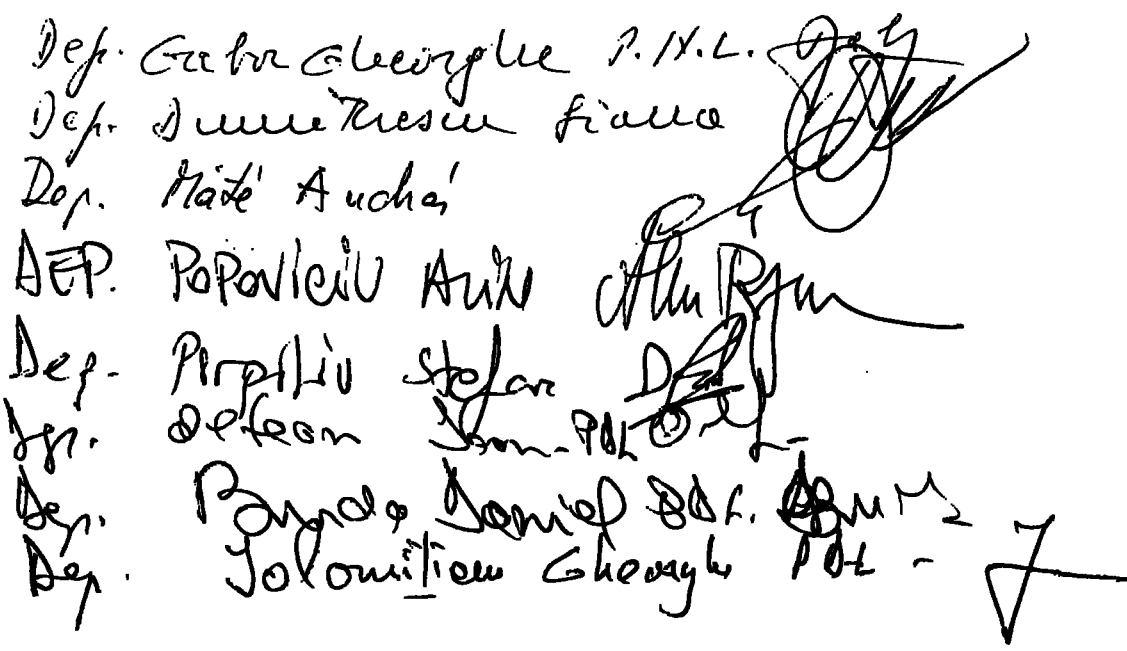 Dep. Gabor Gheorghe P.N.L.
Dep. Dumitrescu Liana
Dep. Máté András
DEP. POPOVICIU ALIN
Dep. Pirpiliu Stefan D
Oltean Ioan - PDL
Dep. Buda Daniel PDL.
Dep. Ialomițianu Gheorghe PDL -